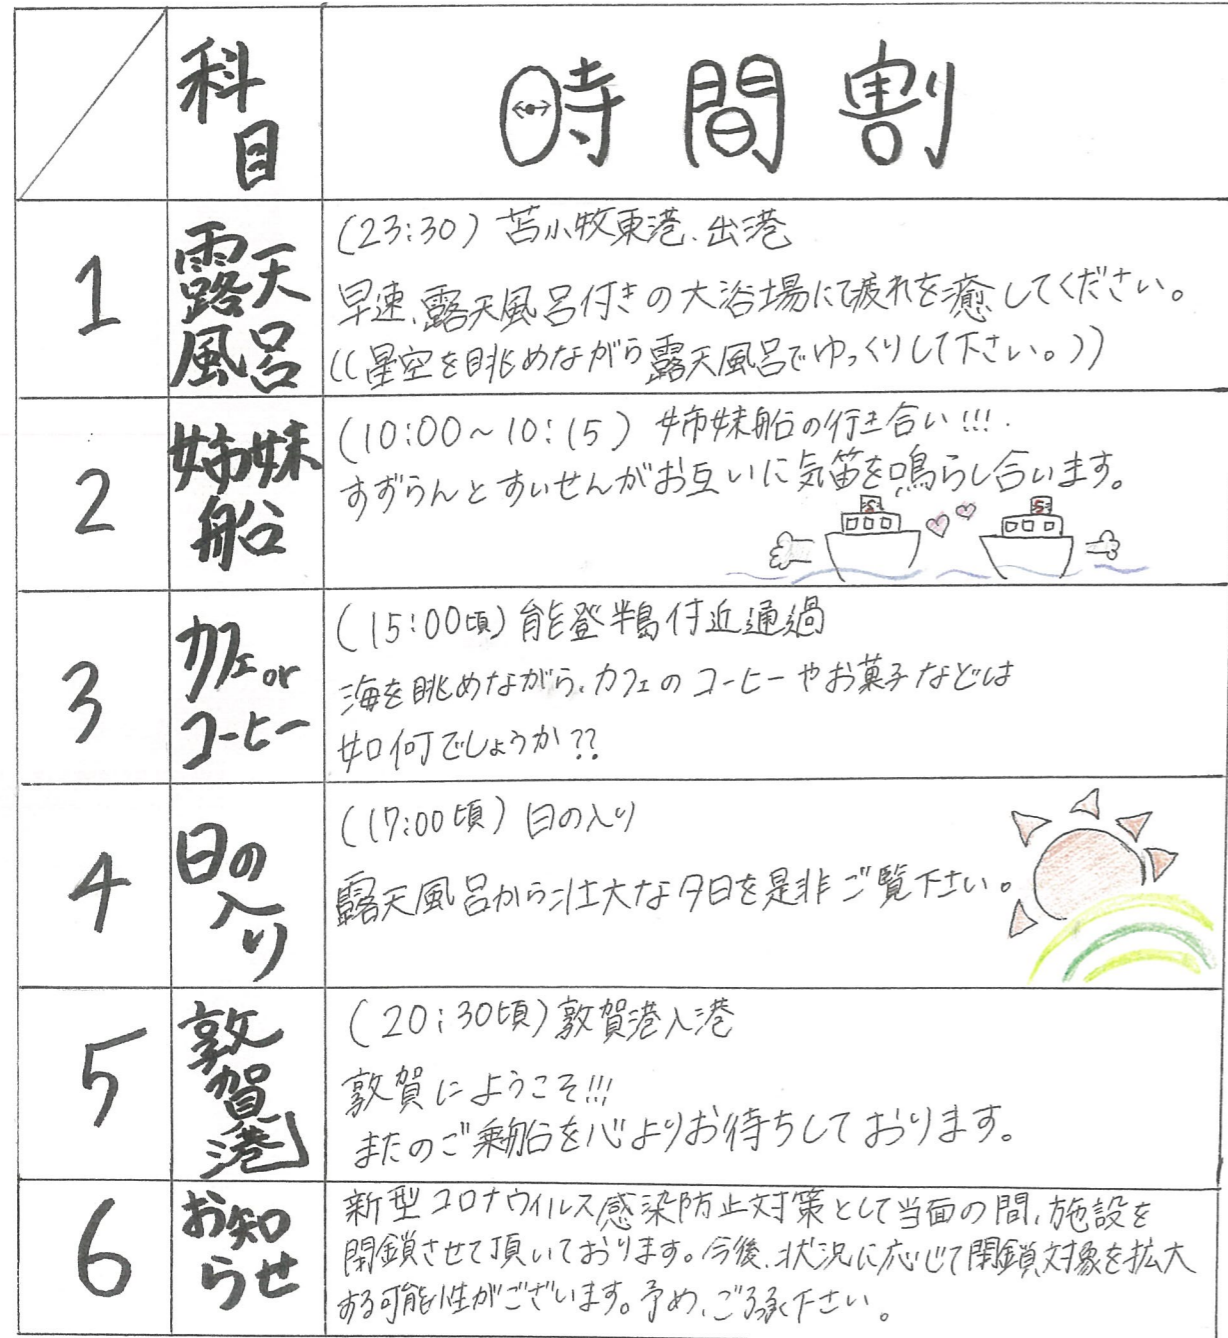 科目
時間割
1
露天風呂
(23:30) 苫小牧東港、出港
早速、露天風呂付きの大浴場にて疲れを癒してください。
((星空を眺めながら露天風呂でゆっくりして下さい。))
2
姉妹船
(10:00~10:15) 姉妹船の行き合い!!!
すずらんとすいせんがお互いに気笛を鳴らし合います。
3
カフェor
コーヒー
(15:00頃) 能登半島付近通過
海を眺めながら、カフェのコーヒーやお菓子などは
如何でしょうか??
4
日の入り
(17:00頃) 日の入り
露天風呂から壮大な夕日を是非ご覧下さい。
5
敦賀港
(20:30頃) 敦賀港入港
敦賀にようこそ!!!
またのご乗船を心よりお待ちしております。
6
お知らせ
新型コロナウイルス感染防止対策として当面の間、施設を
閉鎖させて頂いております。今後、状況に応じて閉鎖対象を拡大
する可能性がございます。予め、ご了承下さい。